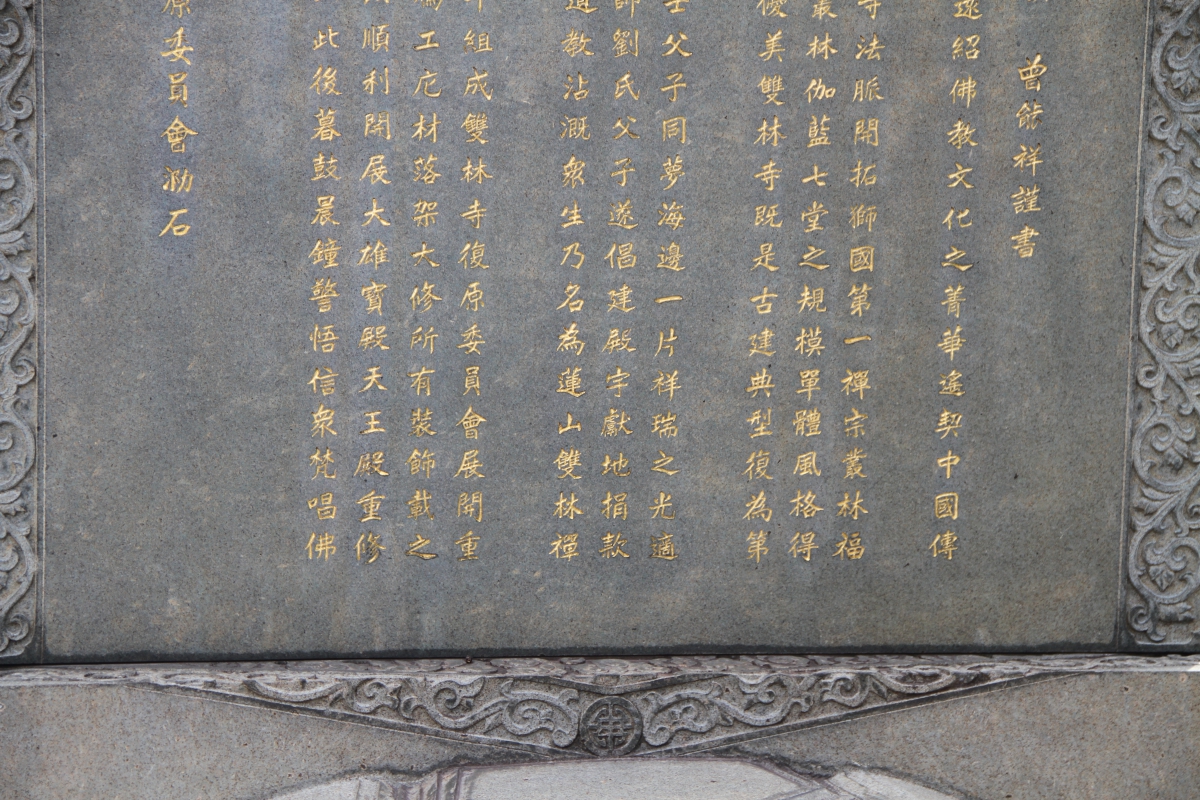 曾燄祥謹書
紹佛教文化之菁華遙契中國傳
寺法脈開拓獅國第一禪宗叢林福
叢林伽藍七堂之規模單體風格得
優美雙林寺既是古建典型復為第
父子同夢海邊一片祥瑞之光適
師劉氏父子遂倡建殿宇獻地捐款
道教沾溉眾生乃名為蓮山雙林禪
組成雙林寺復原委員會展開重
工庀材落架大修所有裝飾載之
順利開展大雄寶殿天王殿重修
此後暮鼓晨鐘警悟信眾梵唱佛
原委員會泐石